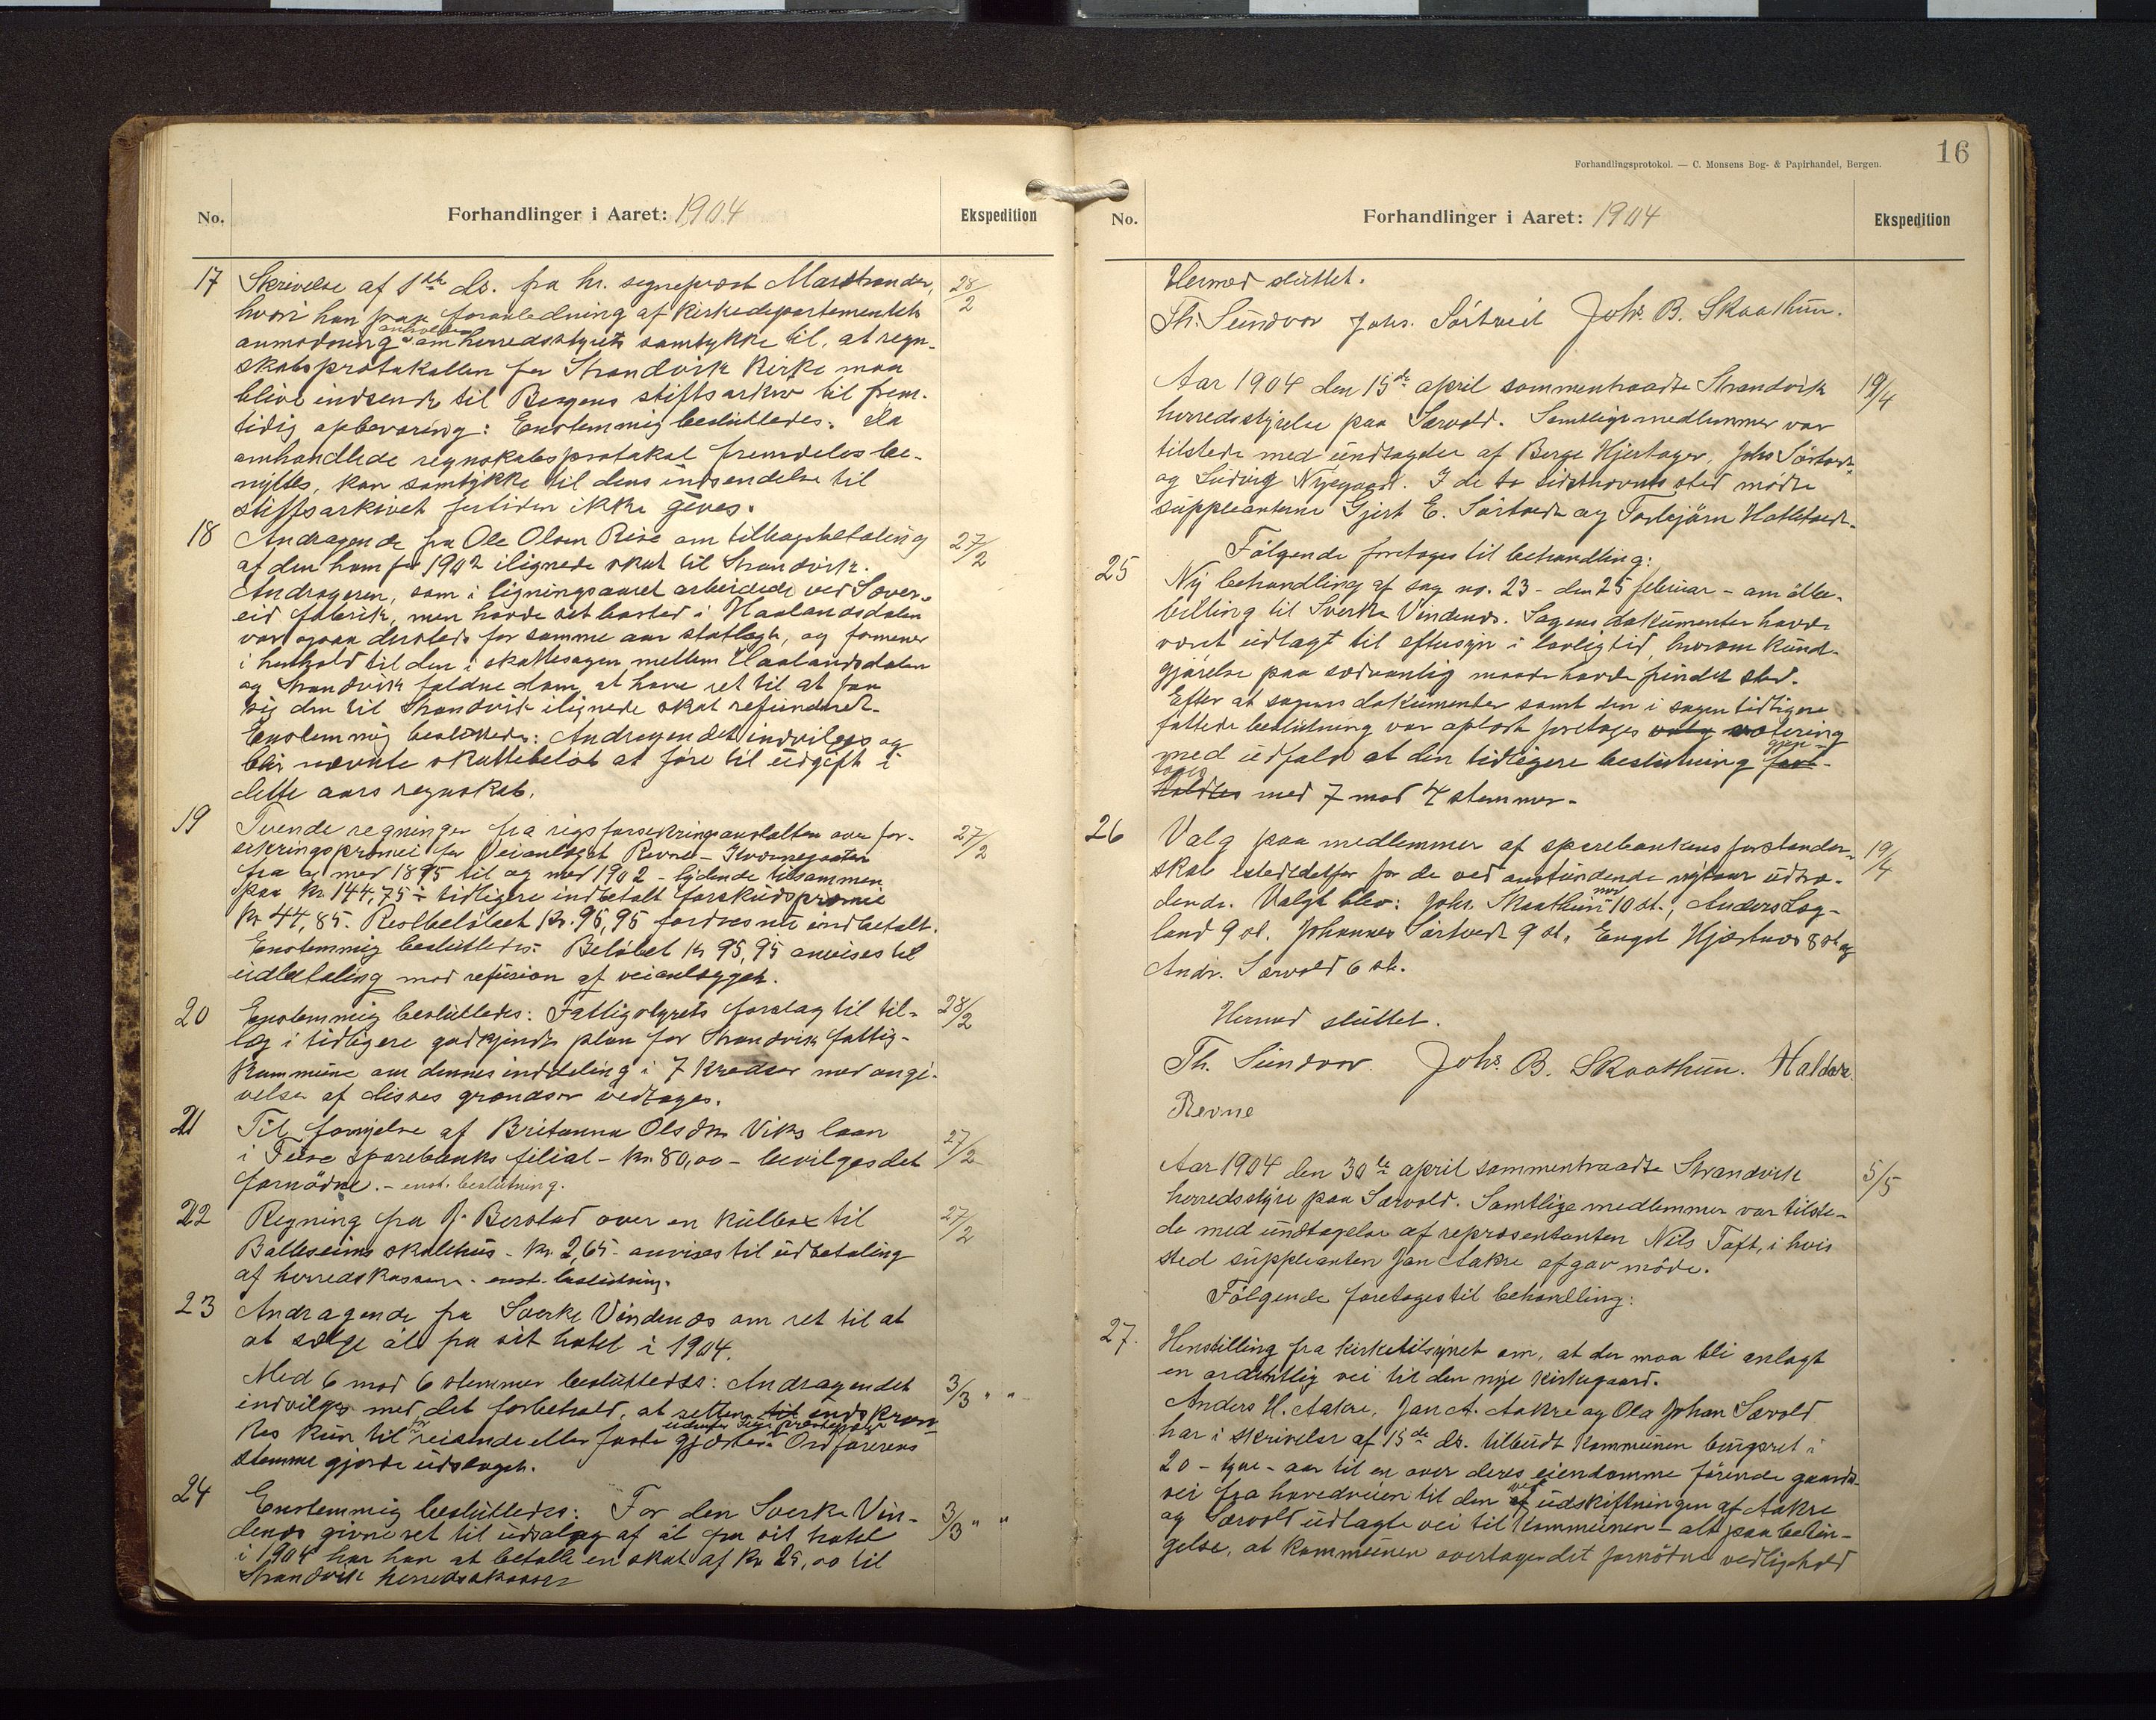 No.
Forhandlinger i Aaret: 1904
Ekspedition
17 Skrivelse af 1ste ds. fra hr. sogneprest Marstrander, 28/2
hvori han paa foranledning af Kirkedepartementets
anmodning anholder om herredsstyrets samtykke til, at regn-
skabsprotokollen for Strandvik Kirke maa
blive indsendt til Bergens stiftsarkiv til frem-
tidig opbevaring: Enstemmig besluttedes: Da
omhandlede regnskabsprotokol fremdeles be-
nyttes, kan samtykke til dens indsendelse til
stiftsarkivet fortiden ikke gives.
18 Andragende fra Ole Olsen Rise om tilbagebetaling 27/2
af den ham for 1902 ilignede skat til Strandvik.
Andrageren, som i ligningsaaret arbeidede ved Søver-
eid fabrik, men havde sit bosted i Haalandsdalen
var ogsaa dersteds for samme aar skatlagt, og formener
i henhold til den i skattesagen mellem Haalandsdalen
og Strandvik faldne dom, at have ret til at faa
sig den til Strandvik ilignede skat refunderet.
Enstemmig besluttedes: Andragendet indvilges og
blir nævnte skattebeløb at føre til udgift i
dette aars regnskab.
19 Tvende regninger fra rigsforsikringsanstalten over for- 27/2
sikringspræmie for Veianlæget Revne - Kvernegaten
fra og med 1895 til og med 1902 - lydende tilsammen
paa kr. 144,75 ÷ tidligere indbetalt forskudspræmie
kr 44,85. Restbeløbet kr. 95,95 fordres nu indbetalt.
Enstemmig besluttedes: Beløbet kr 95,95 anvises til
udbetaling mod refusion af veianlægget.
20 Enstemmig besluttedes: Fattigstyrets forslag til til- 28/2
læg i tidligere godkjendt plan for Strandvik fattig-
kommune om dennes inddeling i 7 kredser med angi-
velse af disses grændser vedtages.
21 Til fornyelse af Britanna Olsdtr Viks laan 27/2
i Fuse sparebanks filial - kr. 80,00 - bevilges det
fornødne. - enst. beslutning.
22 Regning fra J. Berstad over en kulbox til 27/2
Balteseims skolehus - kr. 2,65 - anvises til udbetaling
af herredskassen. enst. beslutning.
23 Andragende fra Sverke Vindenes om ret til at
at sælge øl fra sit hotel i 1904.
Med 6 mod 6 stemmer besluttedes: Andragendet 3/3 " "
indvilges med det forbehold, at retten til indskræn-
kes kun til reisende eller faste gjæster. Ordførerens
stemme gjorde udslaget.
24 Enstemmig besluttedes: For den Sverke Vin- 3/3 " "
denes givne ret til udsalg af øl fra sit hotel
i 1904 har han at betale en skat af kr 25,00 til
Strandvik herredskasse
Forhandlingsprotokol. — C. Monsens Bog- & Papirhandel, Bergen.
16
No.
Forhandlinger i Aaret: 1904
Ekspedition
Hermed sluttet.
Th. Sundvor Johs. Sørtveit Johs. B. Skaathun.
Aar 1904 den 15de april sammentraadte Strandvik 19/4
herredsstyrelse paa Sævold. Samtlige medlemmer var
tilstede med undtagelse af Berge Hjertager, Johs Sørtvedt
og Ludvig Nygaard. I de to sidstnævntes sted mødte
suppleanterne Gjert E. Sørtvedt og Torbjørn Hatletvedt.
Følgende foretages til behandling:
25 Ny behandling af sag no. 23 - den 25 februar - om ølbe-
villing til Sverke Vindenes. Sagens dokumenter havde
været udlagt til eftersyn i lovlig tid, hvorom kund-
gjørelse paa sædvanlig maade havde fundet sted.
Efter at sagens dokumenter samt den i sagen tidligere
fattede beslutning var oplæst foretoges valg votering
med udfald at den tidligere beslutning fast- gjen-
holdtes toges med 7 mod 4 stemmer.
26 Valg paa medlemmer af sparebankens forstander- 19/4
skab istedetfor for de ved anstundende nytaar udtræ-
dende. Valgt blev: Johs. Skaathun med 10 st., Anders Lög-
land 9 st. Johannes Sørtvedt 9 st, Engel Hjartnes 8 st og
Andr. Sævold 6 st.
Hermed sluttet.
Th. Sundvor. Johs. B. Skaathun. Haldor
Revne
Aar 1904 den 30te april sammentraadte Strandvik 5/5
herredsstyre paa Sævold. Samtlige medlemmer var tilste-
de med undtagelse af repræsentanten Nils Toft, i hvis
sted suppleanten Jan Aakre afgav møde.
Følgende foretages til behandling:
27. Henstilling fra kirketilsynet om, at der maa bli anlagt
en ordentlig vei til den nye kirkegaard.
Anders H. Aakre, Jan A. Aakre og Ola Johan Sævold
har i skrivelse af 15de ds. tilbudt kommunen brugsret i
20 - tyve - aar til en over deres eiendomme førende gaards-
vei fra hovedveien til den af ved udskiftningen af Aakre
og Sævold udlagte vei til kommunen - alt paa betin-
gelse, at kommunen overtager det fornødne vedligehold